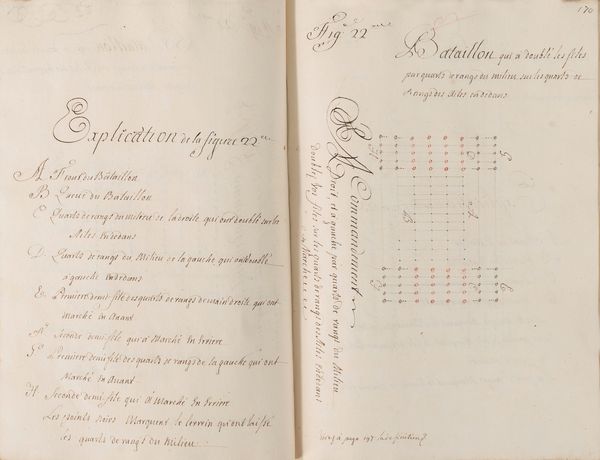 Explication de la figure 22.me
A. Front du Bataillon
B. Queue du Bataillon
C. Quarts de rangs du milieu de la droite qui ont doublé sur les
Ailes en dedans
D. Quarts de rangs du Milieu de la gauche qui ont doublé
à gauche en dedans
E. Premiere demi file des quarts de rangs de main droite qui ont
Marché en Avant
F. Seconde demi file qui à Marché En Arriere
G. Premiere demi file des quarts de rangs de la gauche qui ont
Marché en Avant
H. Seconde demi file qui à Marché En Arriere
Les points noirs Marquent le terrein qu'ont laissé
les quarts de rangs du Milieu
170
Fig. 22.me
Bataillon qui à doublé les files
par quarts de rangs du milieu sur les quarts de
Rangs des Ailes en dedans
Commandement
A Droit, et à gauche par quarts de rangs du Milieu
doublés vos files sur les quarts de rangs des Ailes en dedans
Marche
G
E
A
B
H